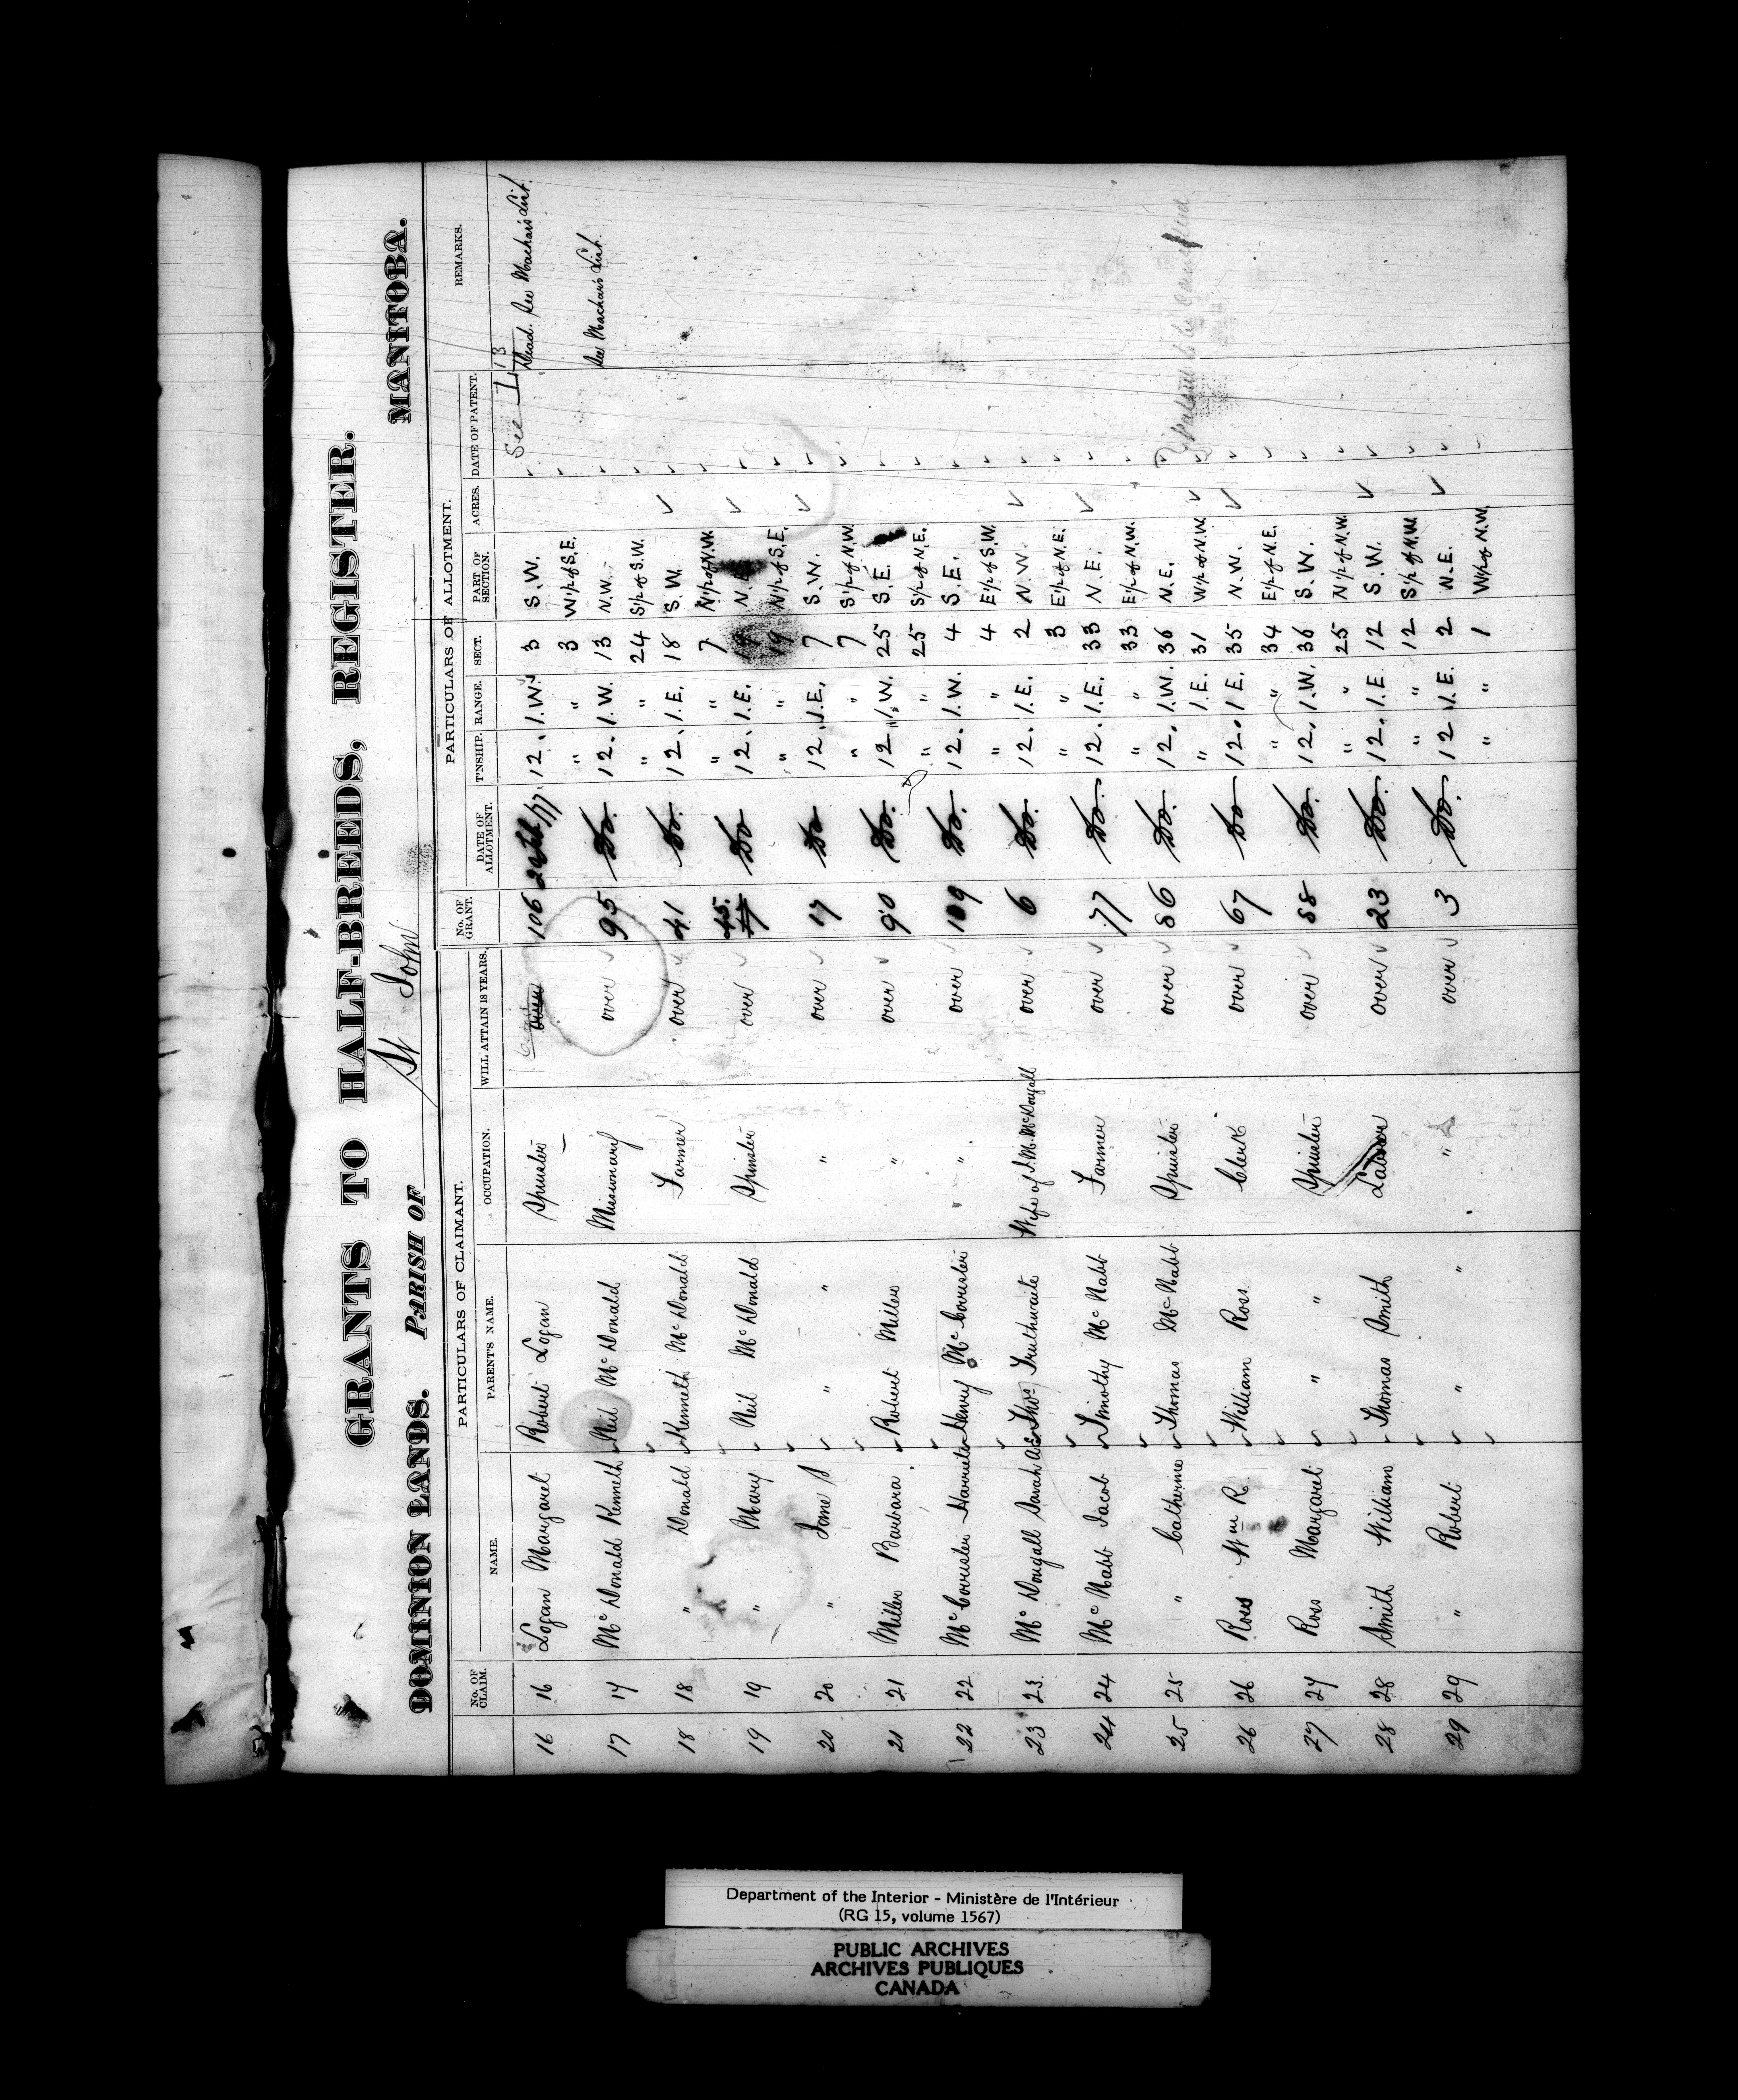 GRANTS TO HALF-BREEDS, REGISTER.
DOMINION LANDS. PARISH OF St John MANITOBA.
PARTICULARS OF CLAIMANT. PARTICULARS OF ALLOTMENT.
No. OF CLAIM. NAME. PARENT'S NAME. OCCUPATION. WILL ATTAIN 18 YEARS. No. OF GRANT. DATE OF ALLOTMENT. T'NSHIP. RANGE. SECT. PART OF SECTION. ACRES. DATE OF PATENT. REMARKS.
See L 13
16 16 Logan Margaret Robert Logan Spinster over 106 12. 1.W. 3 S.W. Dead. See Machar's List.
" " 3 W1/2 of S.E.
17 17 Mc Donald Kenneth Neil Mc Donald Missionary over 95 Do. 12. 1.W. 13 N.W. See Machar's List.
" " 24 S1/2 of S.W.
18 18 " Donald Kenneth Mc Donald Farmer over 41 Do. 12. 1.E. 18 S.W.
" " 7 N1/2 of N.W.
19 19 " Mary Neil Mc Donald Spinster over 45. Do 12. 1.E. 19 N.E.
" " 19 N1/2 of S.E.
20 20 " Jane S " " " over 17 Do 12. 1.E. 7 S.W.
" " 7 S1/2 of N.W.
21 21 Miller Barbara Robert Miller " over 90 Do. 12. 1.W. 25 S.E.
" " 25 S1/2 of N.E.
22 22 Mc Corrister Harriete Henry Mc Corrister " over 109 Do. 12. 1.W. 4 S.E.
" " 4 E1/2 of S.W.
23 23 Mc Dougall Sarah Thos Truthwaite Wife of J. M. McDougall over 6 Do. 12. 1.E. 2 N.W.
" " 3 E1/2 of N.E.
24 24 Mc Nabb Jacob Timothy Mc Nabb Farmer over 77 Do. 12. 1.E. 33 N.E.
" " 33 E1/2 of N.W.
25 25 " Catherine Thomas Mc Nabb Spinster over 86 Do. 12. 1.W. 36 N.E.
" 1.E. 31 W1/2 of N.W.
26 26 Ross Wm R. William Ross Clerk over 67 Do 12. 1 E. 35 N.W.
" " 34 E1/2 of N.E.
27 27 Ross Margaret " " Spinster over 88 Do. 12. 1.W. 36 S.W.
" " 25 N1/2 of N.W.
28 28 Smith William Thomas Smith Labour over 23 Do. 12. 1.E. 12 S.W.
" " 12 S1/2 of N.W.
29 29 " Robert " " " over 3 Do. 12 1.E. 2 N.E.
" " 1 W1/2 of N.W.
Department of the Interior - Ministère de l'Intérieur
(RG 15, volume 1567)
PUBLIC ARCHIVES
ARCHIVES PUBLIQUES
CANADA